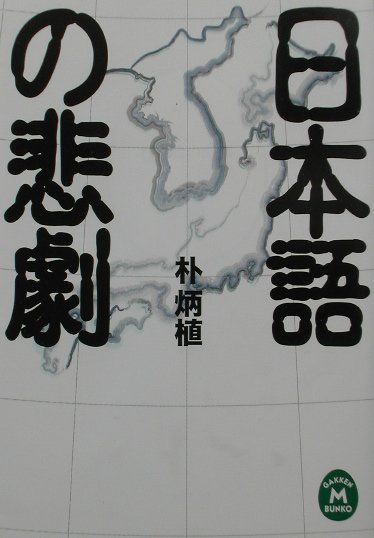 日本語
の悲劇
朴炳植
GAKKEN
M
BUNKO